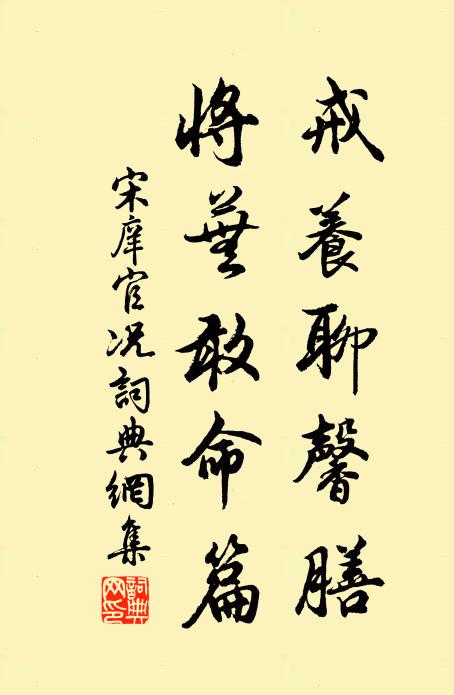 戒養聊馨膳
將蕪敢命篇
宋庠官况詞典網集
詞典網印